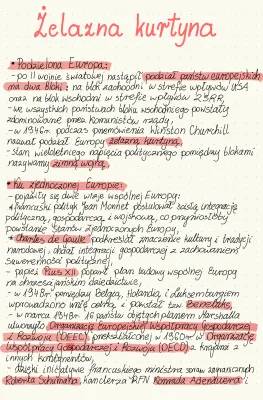 Żelazna kurtyna
• Podzielona Europa:
- po II wojnie światowej nastąpił podział państw europejskich
na dwa bloki: na blok zachodni w strefie wpływów USA
oraz na blok wschodni w strefie wpływów ZSRR,
- we wszystkich państwach bloku wschodniego powstały
zdominowane przez komunistów rządy,
- w 1946r. podczas przemówienia Winston Churchill
nazwał podział Europy żelazną kurtyną,
- stan wieloletniego napięcia politycznego pomiędzy blokami
nazywamy zimną wojną,
• Ku zjednoczonej Europie:
- pojawiły się dwie wizje wspólnej Europy:
francuski polityk Jean Monnet postulował ścisłą integrację
polityczną, gospodarczą i wojskową, co przyniosłoby
powstanie Stanów Zjednoczonych Europy,
Charles de Gaulle podkreślał znaczenie kultury i tradycji
narodowej, chciał integracji gospodarczej z zachowaniem
suwerenności politycznej,
- papież Pius XII poparł plan budowy wspólnej Europy
na chrześcijańskim dziedzictwie,
- w 1948r. pomiędzy Belgią, Holandią i Luksemburgiem
wprowadzono unię celną, i powstał tzw. Beneluks,
- w marcu 1948r. 16 państw objętych planem Marshalla
utworzyło Organizację Europejskiej Współpracy Gospodarczej
i Rozwoju (OEEC) przekształconą w 1960r. w Organizację
Współpracy Gospodarczej i Rozwoju (OECD) z krajami z
innych kontynentów,
- dzięki inicjatywie francuskiego ministra spraw zagranicznych
Roberta Schumana, kanclerza RFN Konrada Adenauera i